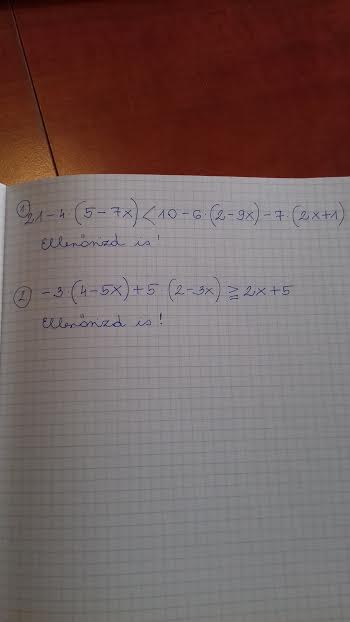 ① 21-4·(5-7x)<10-6·(2-9x)-7·(2x+1)
Ellenőrizd is!
② -3·(4-5x)+5·(2-3x)≧2x+5
Ellenőrizd is!